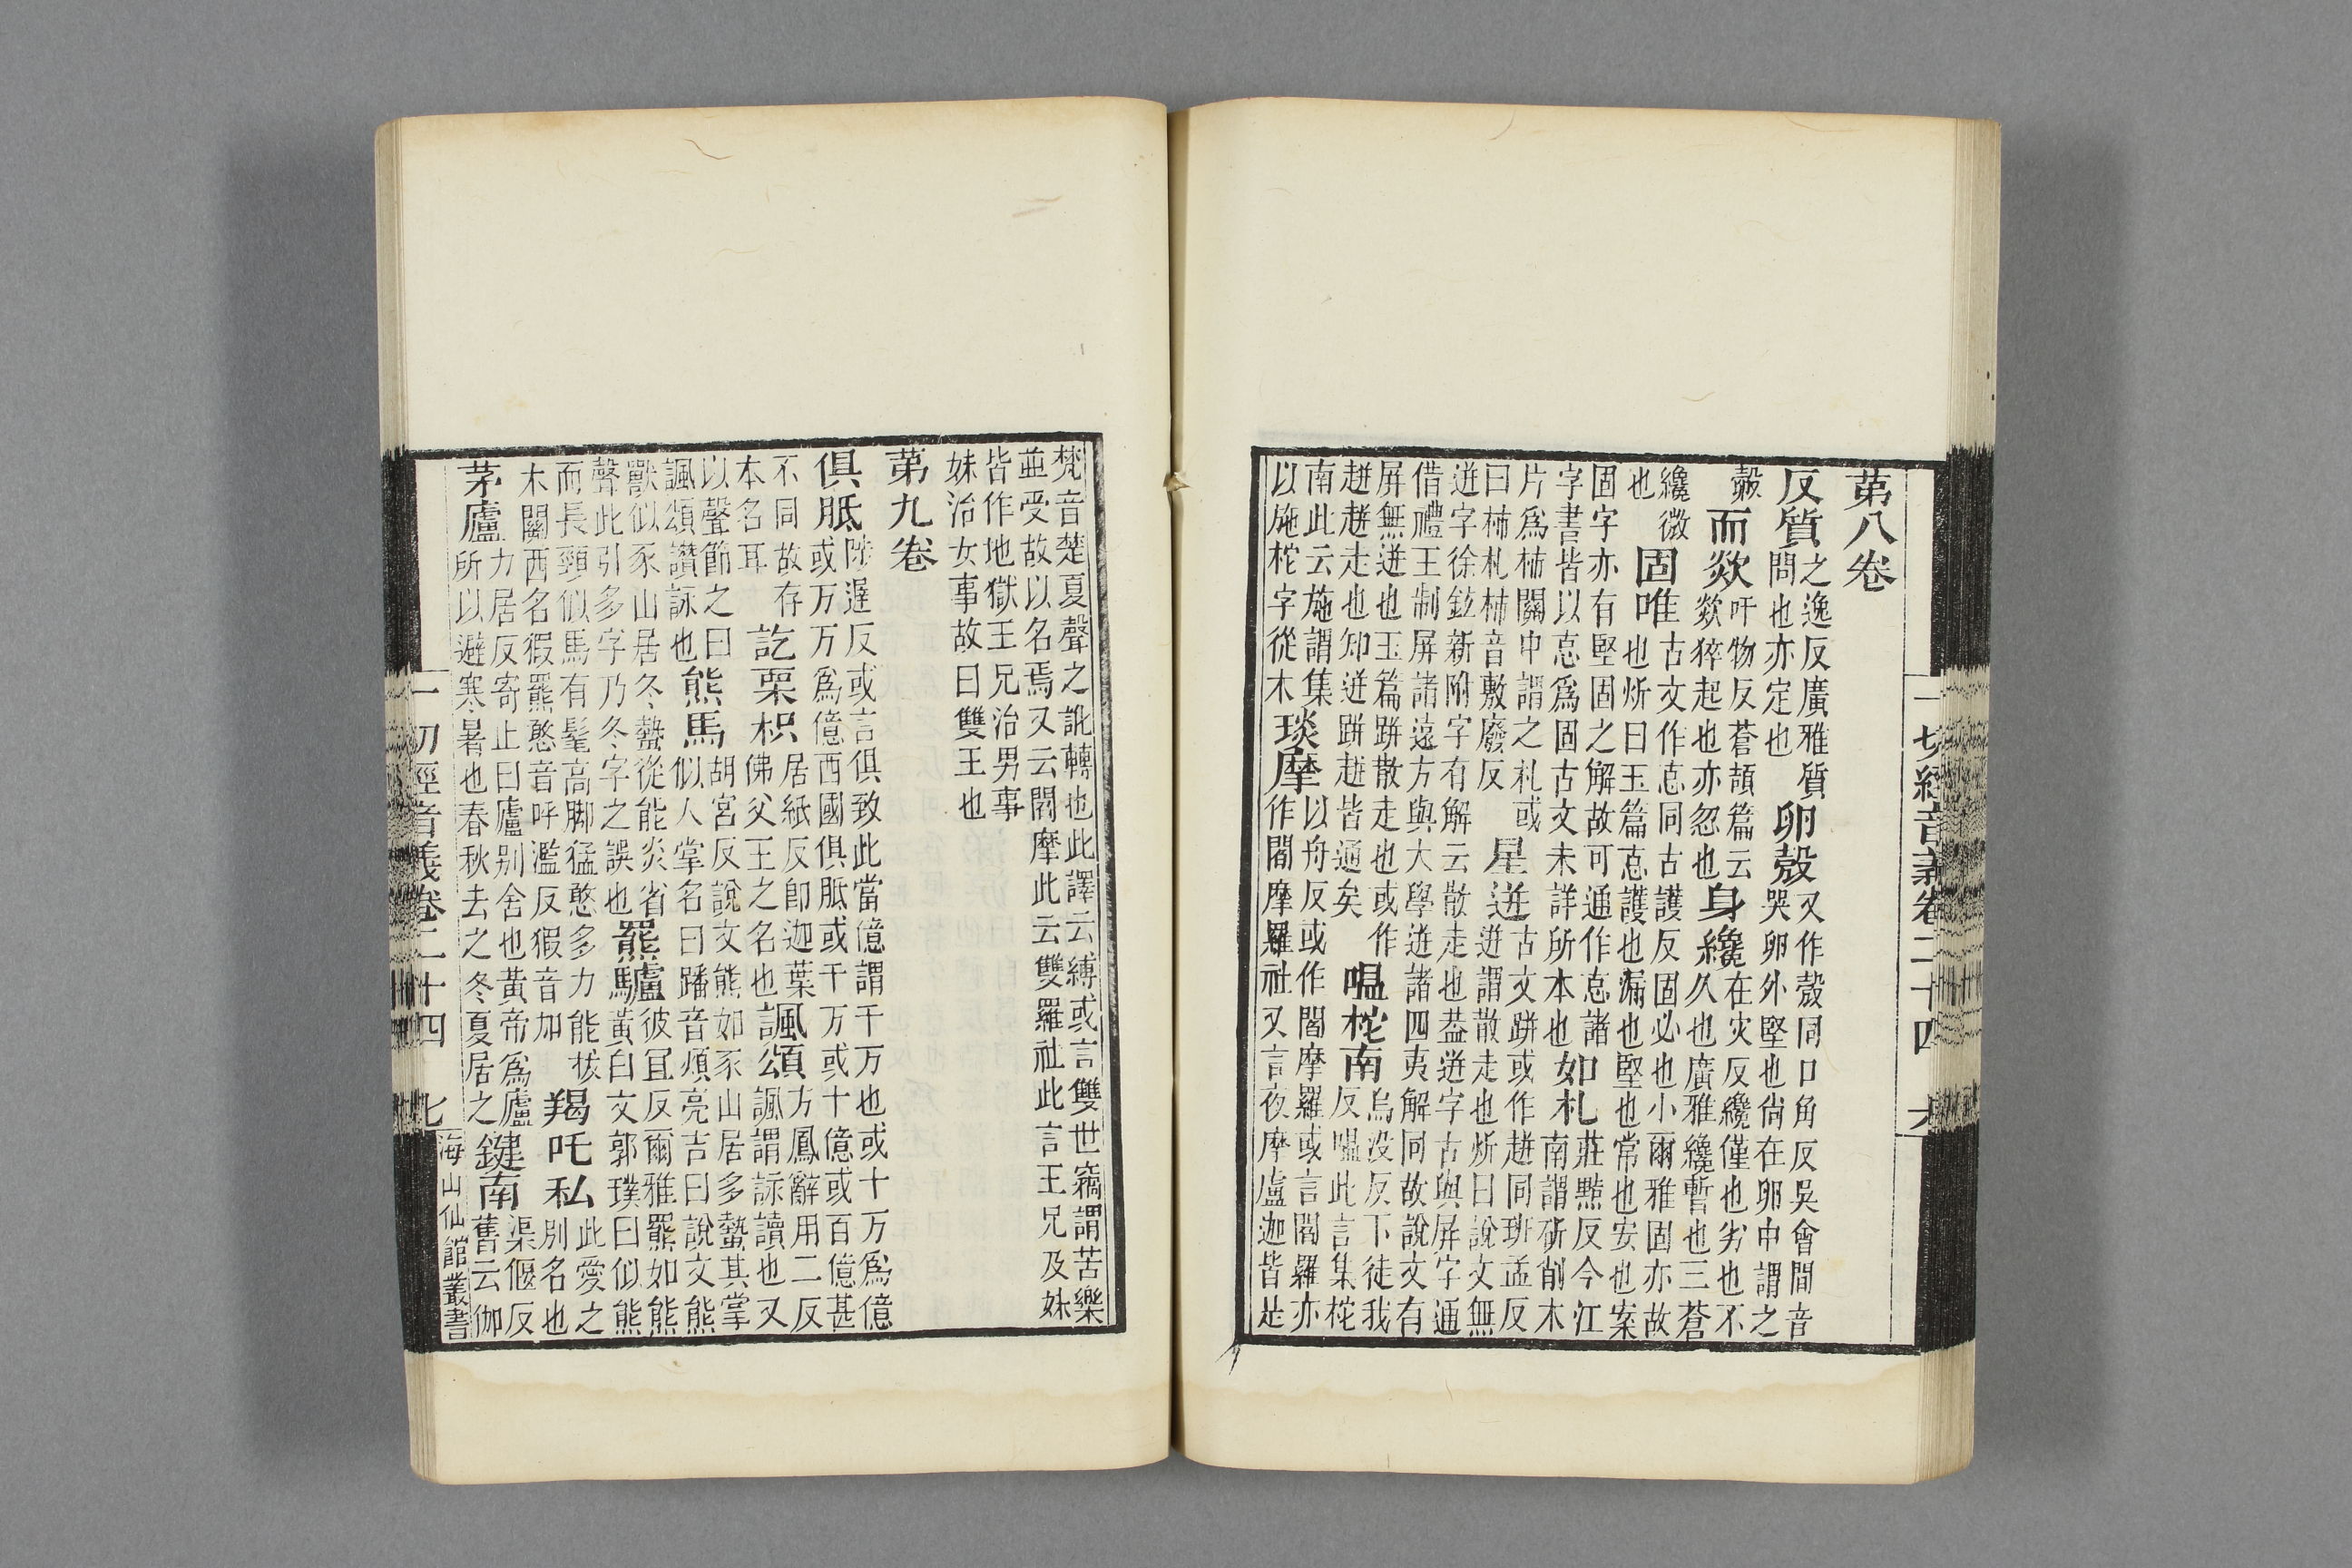 一切經音義卷二十四 六
第八卷
反質
之逸反廣雅質
問也亦定也
卵㲉
又作㲉同口角反吳會間音
哭卵外堅也尙在卵中謂之
㲉
而欻
吁物反蒼頡篇云
欻猝起也亦忽也
身纔
在灾反纔僅也劣也不
久也廣雅纔暫也三蒼
纔微
也
固唯
古文作怘同古護反固必也小爾雅固亦故
也炘曰玉篇怘護也漏也堅也常也安也案
固字亦有堅固之解故可通作怘諸
字書皆以怘爲固古文未詳所本也
如札
莊黠反今江
南謂斫削木
片爲杮關中謂之札或
曰杮札杮音敷廢反
星迸
古文跰或作同班孟反
迸謂散走也炘曰說文無
迸字徐鉉新附字有解云散走也葢迸字古與屏字通
借禮王制屏諸遠方與大學迸諸四夷解同故說文有
屏無迸也玉篇跰散走也或作
走也知迸跰皆通矣
嗢柁南
烏没反下徒我
反嗢此言集柁
南此云施謂集
以施柁字從木
琰摩
以舟反或作閻摩羅或言閻羅亦
作閻摩羅社又言夜摩盧迦皆是
梵音楚夏聲之訛轉也此譯云縛或言雙世竊謂苦樂
並受故以名焉又云閻摩此云雙羅社此言王兄及妹
皆作地獄王兄治男事
妹治女事故曰雙王也
第九卷
俱胝
陟遟反或言俱致此當億謂千万也或十万爲億
或万万爲億西國俱胝或千万或十億或百億甚
不同故存
本名耳
訖栗枳
居紙反卽迦葉
佛父王之名也
諷頌
方鳳辭用二反
諷謂詠讀也又
以聲節之曰
諷頌讚詠也
熊馬
胡宮反說文熊如豕山居多蟄其掌
似人掌名曰蹯音煩亮吉曰說文熊
獸似豕山居冬蟄從能炎省
聲此引多字乃冬字之誤也
羆驢
彼冝反爾雅羆如熊
黃白文郭璞曰似熊
而長頸似馬有髦高脚猛憨多力能拔
木關西名猳羆憨音呼濫反猳音加
羯吒私
此愛之
別名也
茅廬
力居反寄止曰廬別舍也黃帝爲廬
所以避寒暑也春秋去之冬夏居之
鍵南
渠偃反
舊云伽
一切經音義卷二十四 七
海山仙館叢書